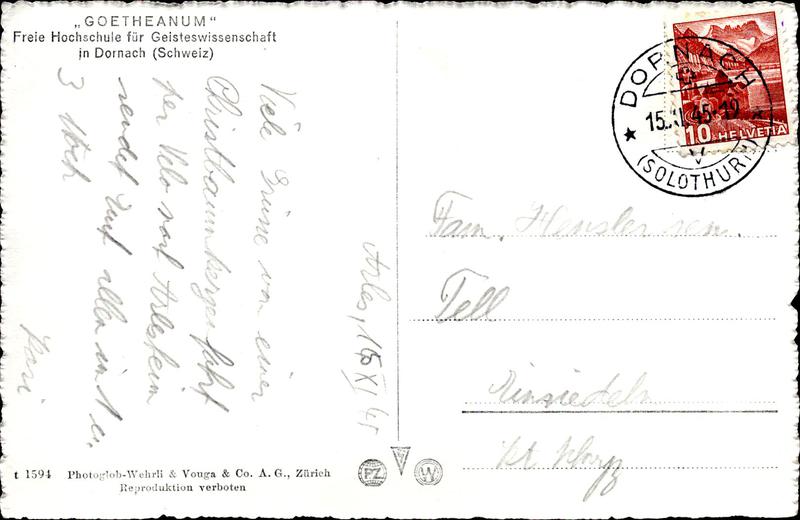 „GOETHEANUM"
Freie Hochschule für Geisteswissenschaft
in Dornach (Schweiz)
Arles, XI 45
Viele Grüsse von einer
Christbaumbergerfahrt
per Velo nach Arlesheim
sendet Euch allen
3
DORNACH
15.XI.45-19
(SOLOTHURN)
10 HELVETIA
Fam. Hensler sen.
Tell
Einsiedeln
Kt. Schwyz
t 1594 Photoglob-Wehrli & Vouga & Co. A. G., Zürich
Reproduktion verboten
PZ
W